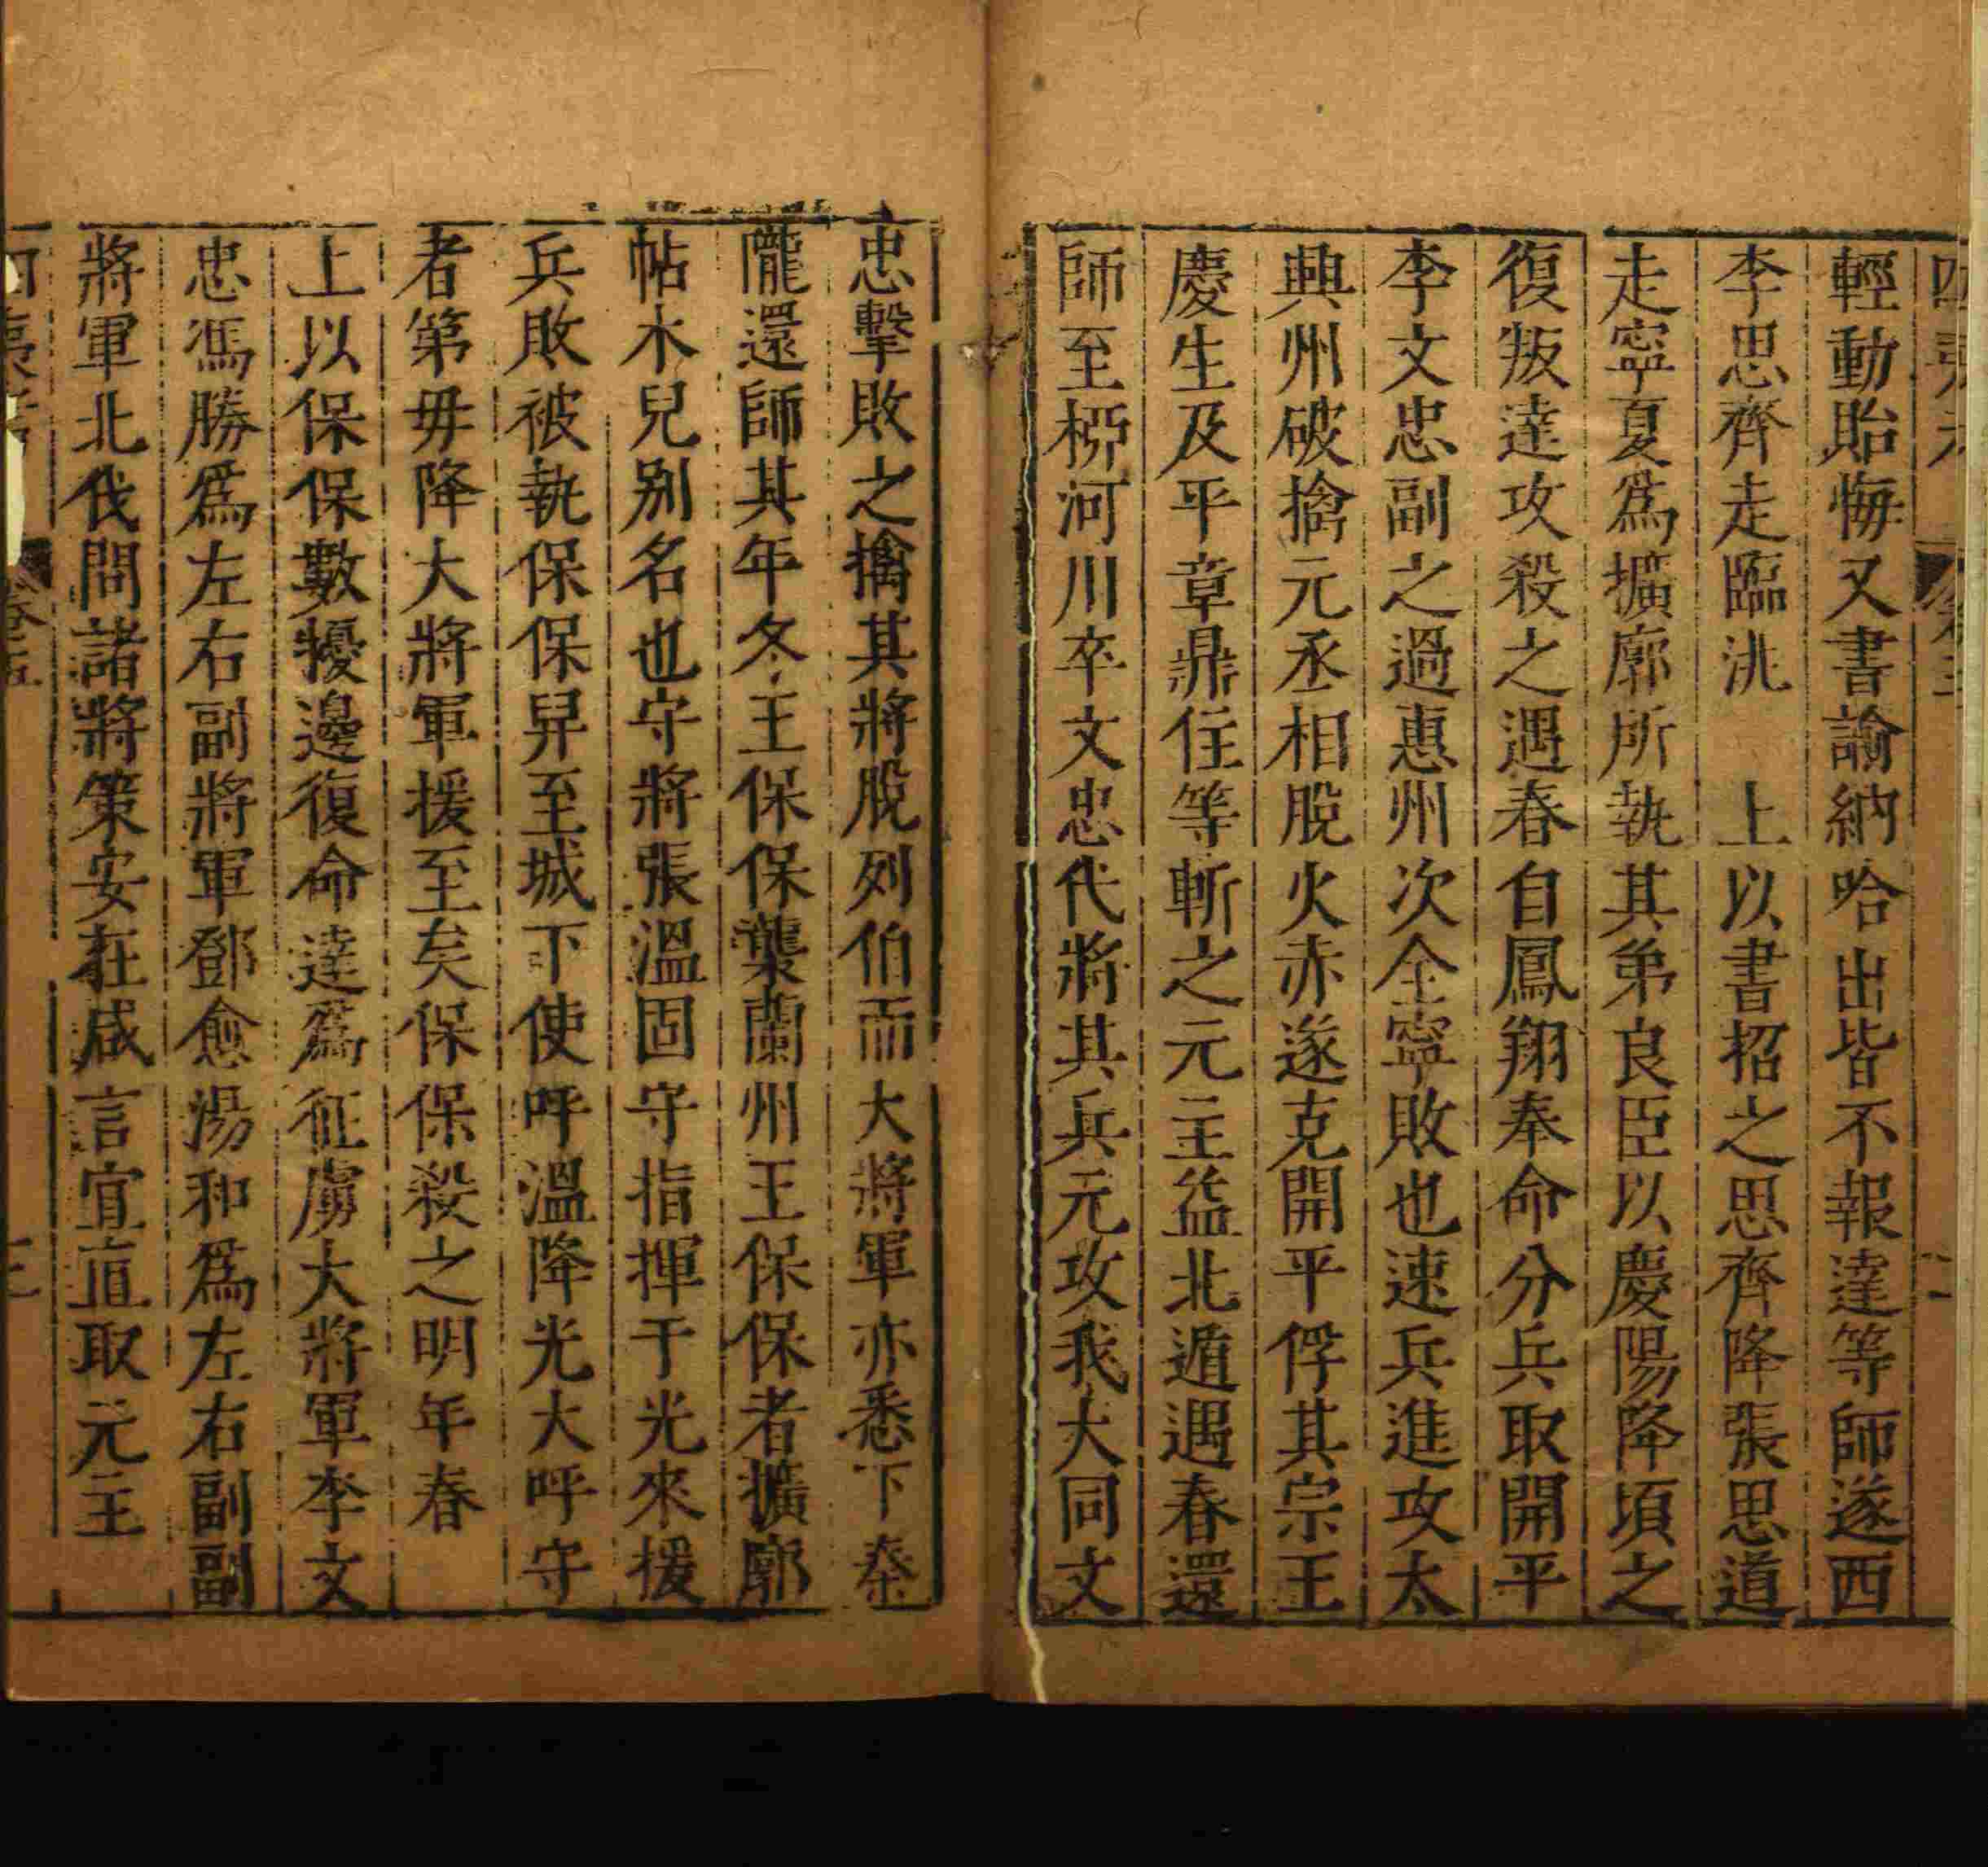 輕動貽悔又書諭納哈出皆不報達等師遂西
李思齊走臨洮　上以書招之思齊降張思道
走寧夏爲擴廓所執其弟良臣以慶陽降頃之
復叛達攻殺之遇春自鳳翔奉命分兵取開平
李文忠副之過惠州次全寧敗也速兵進攻太
興州破擒元丞相脫火赤遂克開平俘其宗王
慶生及平章鼎住等斬之元主益北遁遇春還
師至栁河川卒文忠代將其兵元攻我大同文
忠擊敗之擒其將脫列伯而大將軍亦悉下秦
隴還師其年冬王保保襲蘭州王保保者擴廓
帖木兒别名也守將張溫固守指揮于光來援
兵敗被執保保舁至城下使呼溫降光大呼守
者第毋降大將軍援至矣保保殺之明年春
上以保保數擾邊復命達爲征虜大將軍李文
忠馮勝爲左右副將軍鄧愈湯和爲左右副副
將軍北伐問諸將策安在咸言宜直取元主